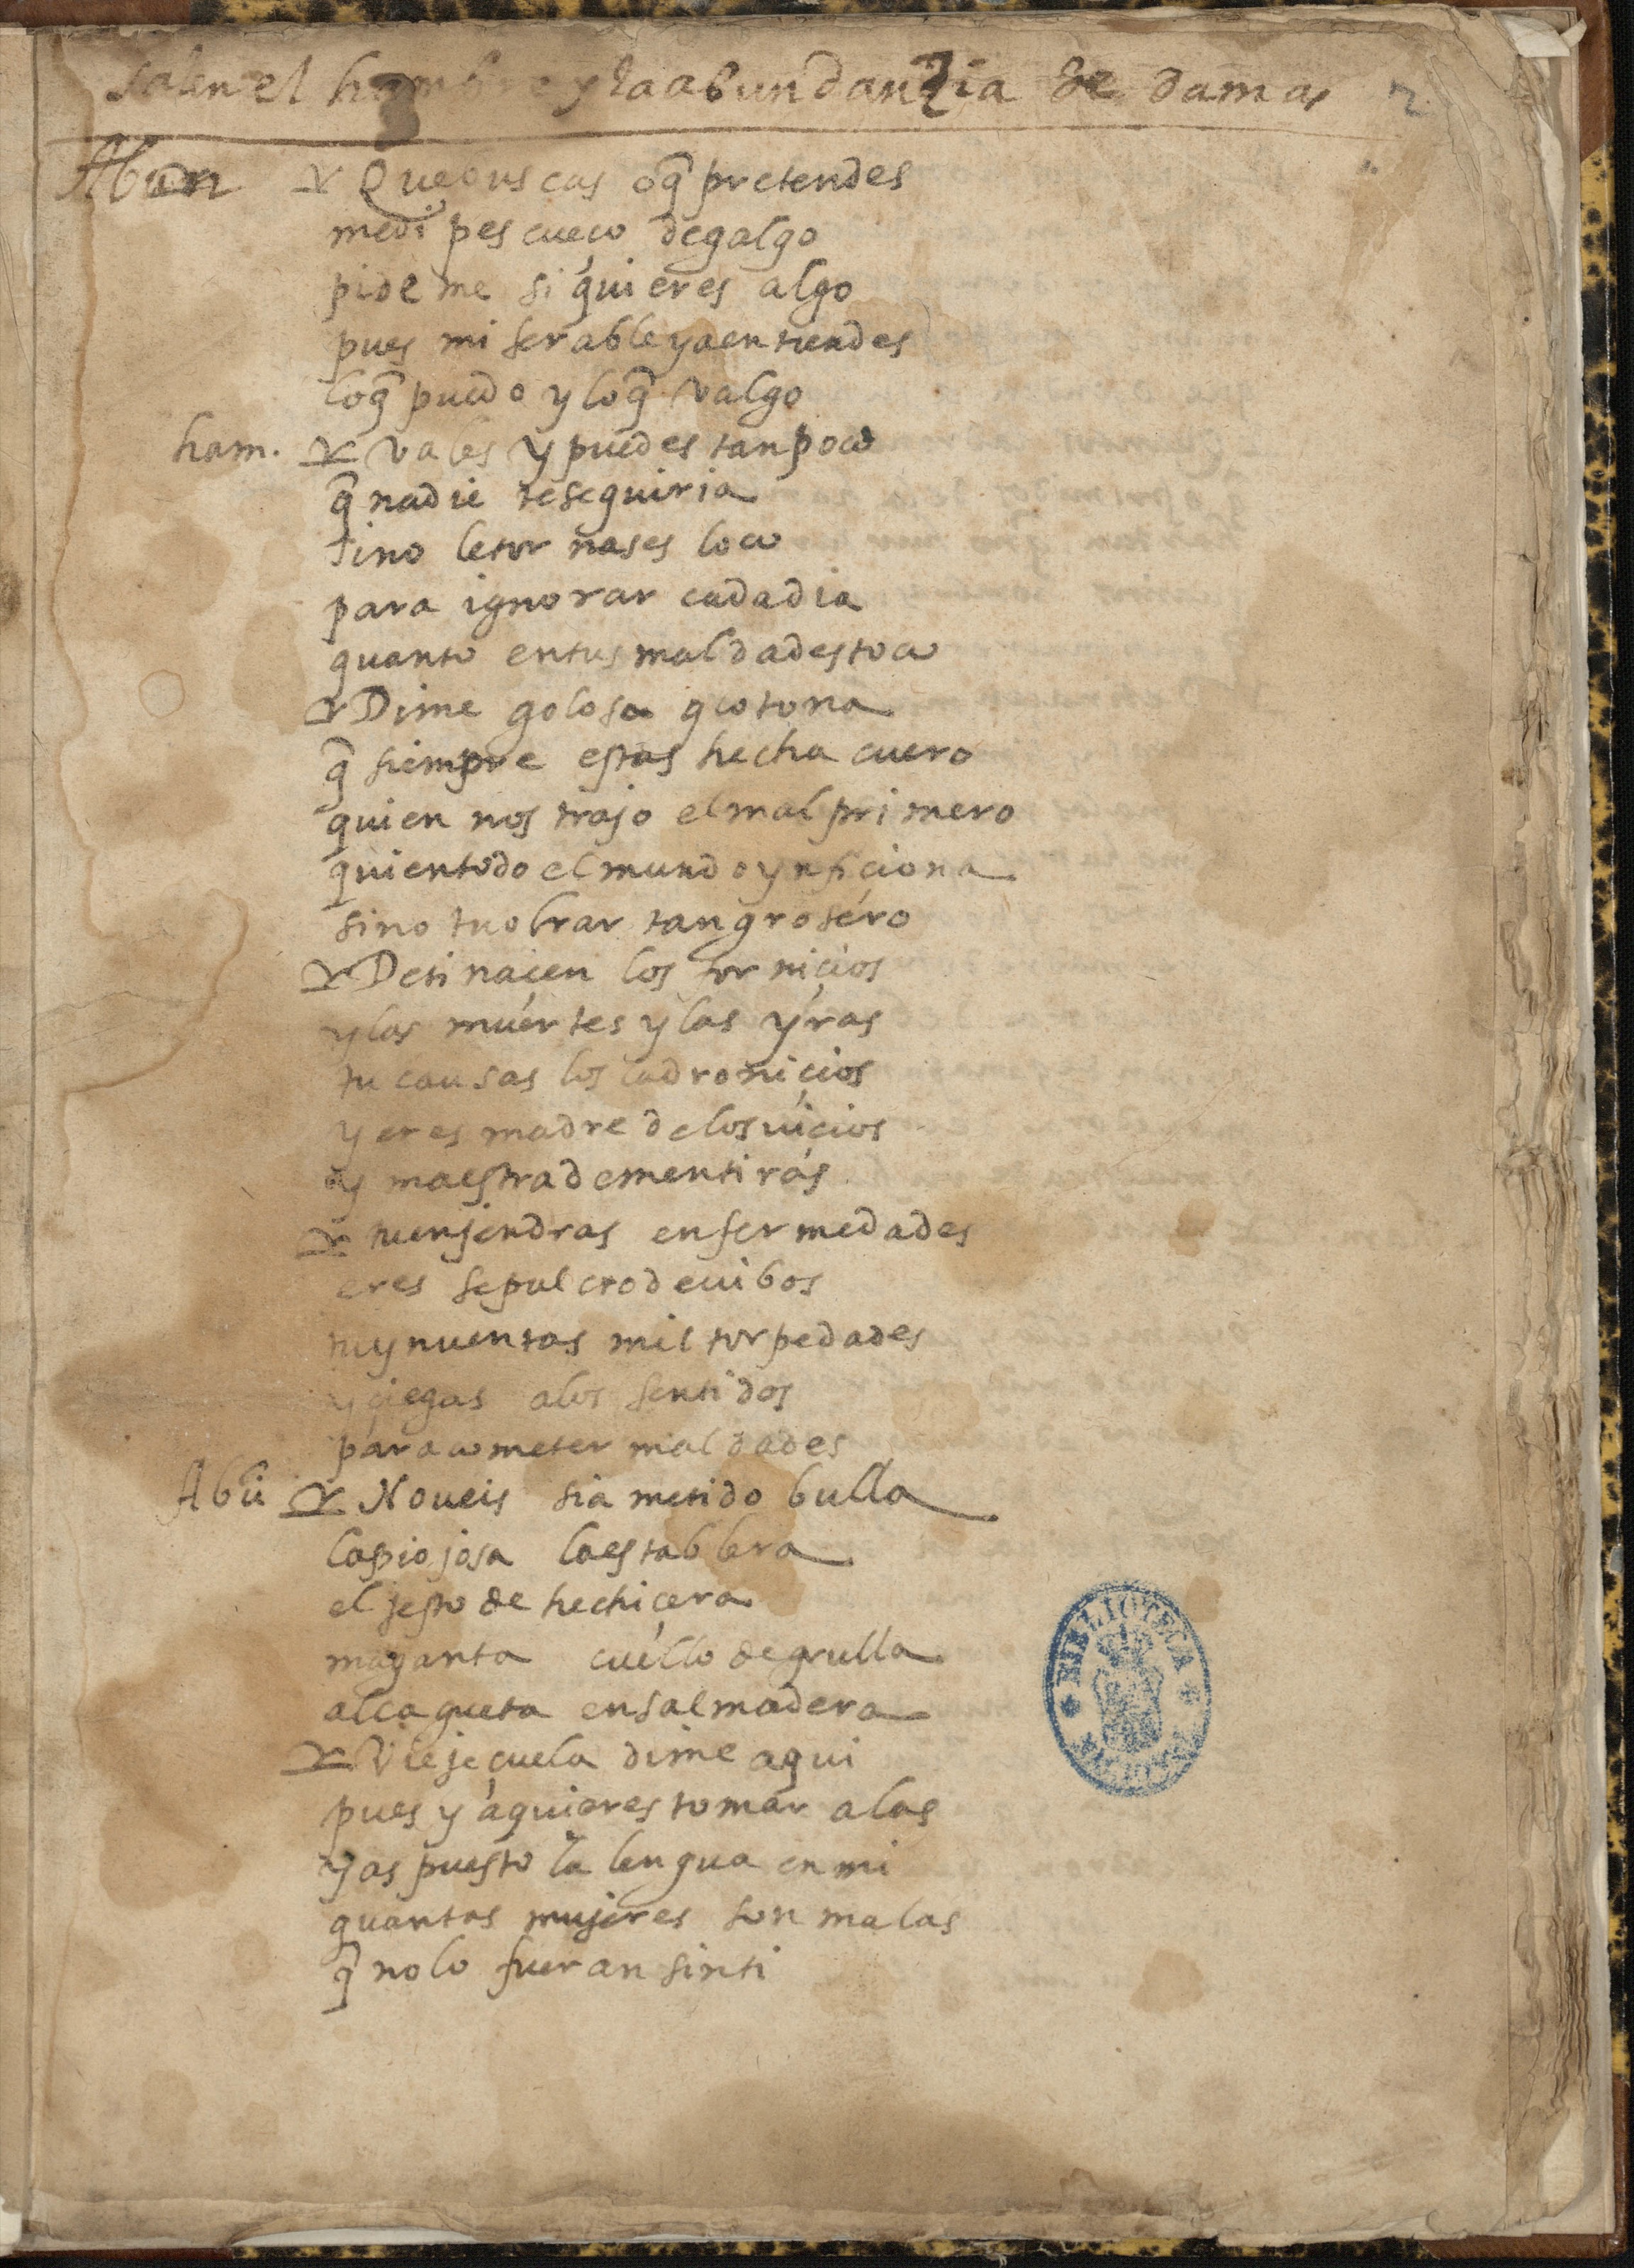 salen el hambre y la abundançia de dama 2
Abun Que buscas o q̃ pretendes
medi pescueço de galgo
pideme si quieres algo
pues miserable ya entiendes
loq̃ puedo y loq̃ valgo
ham. vales y puedes tan poco
q̃ nadie te seguiria
sino le tornases loco
para ignorar cada dia
quanto en tus maldades toco
Dime golosa glotona
q̃ siempre estas hecha cuero
quien nos trajo el mal primero
quien todo el mundo ynficiona
sino tu obrar tan grosero
De ti naçen los forniçios
y las muertes y las yras
tu causas los ladroniçios
y eres madre de los viçios
y maestra de mentiras
tu enjendras enfermedades
eres sepulcro de vibos
tu ynventas mil torpedades
y çiegas a los sentidos
para cometer maldades
Abũ No veis si a metido bulla
la piojosa la establera
el jesto de hechiçera
maganta cuello de grulla
alcagueta ensalmadera
Viejeçuela dime aqui
pues ya quieres tomar alas
y as puesto la lengua en mi
quantas mujeres son malas
q̃ no lo fueran sin ti
BIBLIOTECA